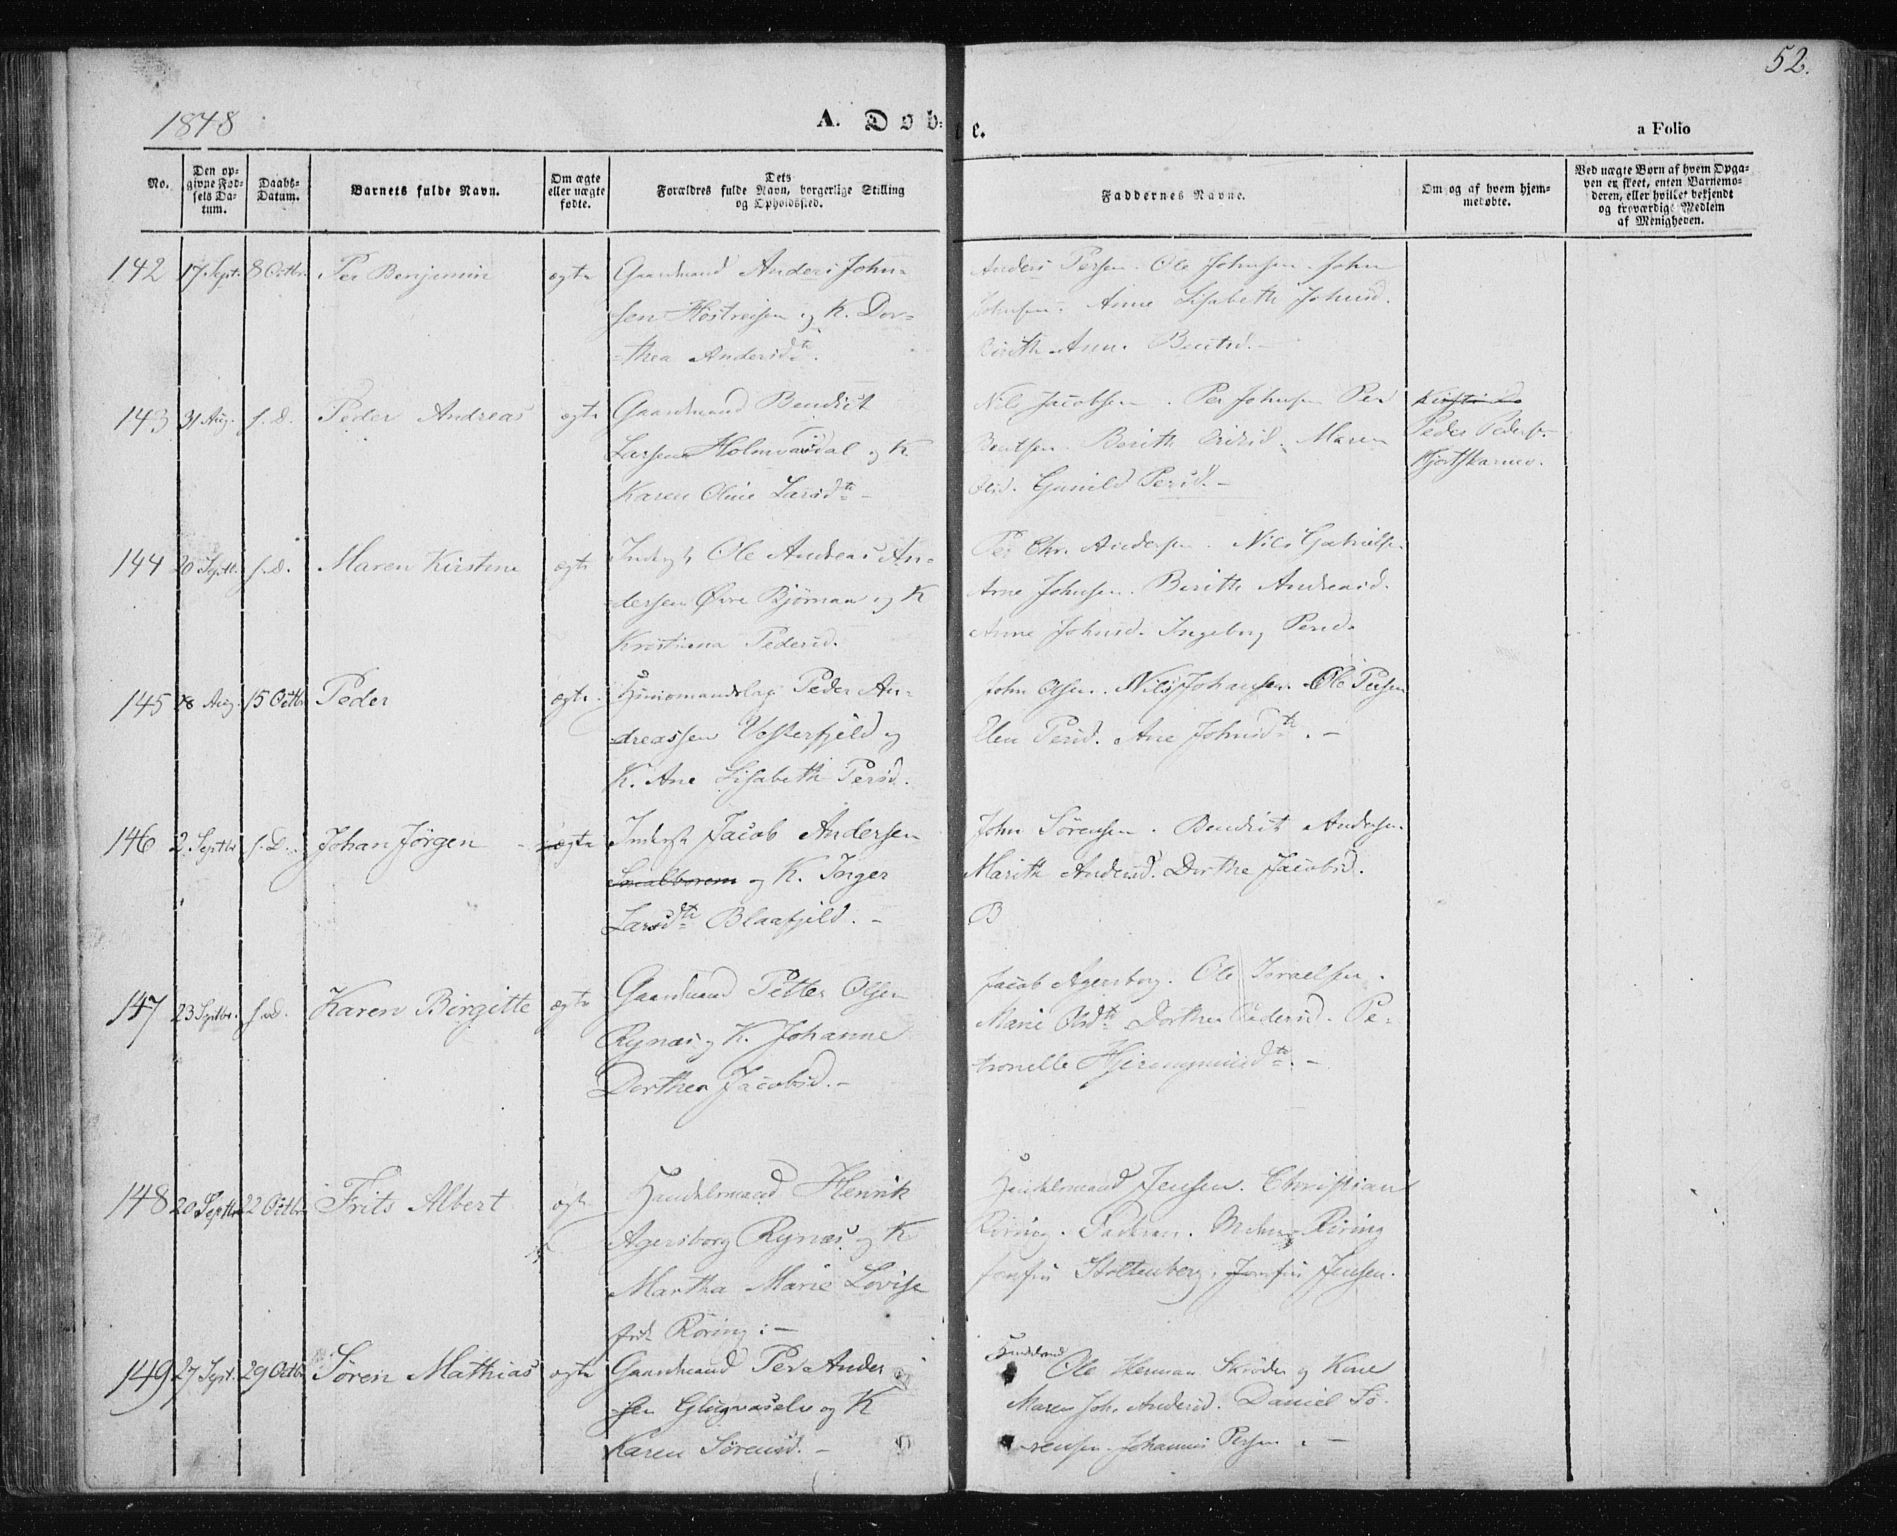 52.
1848
A. Døbte.
a Folio
No.
Den op-
givne Fød-
sels Da-
tum.
Daabs-
Datum.
Barnets fulde Navn.
Om ægte
eller uægte
fødte.
Dets
Forældres fulde Navn, borgerlige Stilling
og Opholdssted.
Faddernes Navne.
Om og af hvem hjem-
medøbte.
Ved uægte Børn af hvem Opga-
ven er skeet, enten Barnemo-
deren, eller hvilket bekjendt
og troværdigt Medlem
af Menigheden.
142 17 Sept. 8 Octbr. Per Benjamin ægte Gaardmand Anders John-
sen Høstreisen og K. Dor-
thea Andersdtr.
Anders Persen. Ole Johnsen. John
Johnsen. Anne Lisabeth Johnsd.
Berith Ann. Bentsd. -
143 31 Aug. s. D. Peder Andreas ægte Gaardmand Bendict
Larsen Holmvasdal og K.
Karen Oline Larsdtr -
Nils Jacobsen. Per Johnsen Per
Bentsen. Berith Maren
Olsd. Gunild Persd. -
Peder Peders.
144 20 Septbr. s. D. Maren Kirstine ægte Inderst Ole Andreas An-
dersen Øvre Bjørnaa og K
Kristiana Pedersd.
Per Chr. Andersen. Nils Gabrielsen
Arne Johnsen. Berith Andreasd.
Anne Johnsd. Ingeborg Persd.
145 18 Aug. 15 Octbr. Peder ægte. Huusmandslog. Peder An-
dreassen Vesterfjeld og
K. Ane Lisabeth Persd.
John Olsen. Nils Johansen. Ole Persen
Elen Persd. Ane Johnsdtr. -
146 2 Septbr s. D. Johan Jørgen ægte Inderst Jacob Andersen
og K. Inger
Larsdtr Blaafjeld. -
John Sørensen. Bendict Andersen.
Marith Andersd. Dorthe Jacobsd.
B
147 23 Septbr. s. D. Karen Birgitte ægte Gaardmand Petter Olsen
Rynæs og K. Johanne
Dorthea Jacobsd. -
Jacob Agersborg. Ole Israelsen.
Marie Olsdtr Dorthea Pedersd. Pe-
tronelle Hjeronymusdtr. -
148 20 Septbr 22 Octbr. Frits Albert ægte Handelsmand Henrik
Agersborg Rynæs og K
Martha Marie Lovise
født Røring: -
Handelsmand Jensen. Christian
Røring. Faderen. Røring
Jomfru Stoltenberg, Jomfru Jensen.
149 27 Sept. 29 Octbr. Søren Mathias ægte Gaardmand Per Ander
sen Glugvaselv og K
Karen Sørensd. -
Ole Herman Skrøder og Kone
Maren Joh. Andersd. Daniel Sø-
rensen. Johannes Persen. -